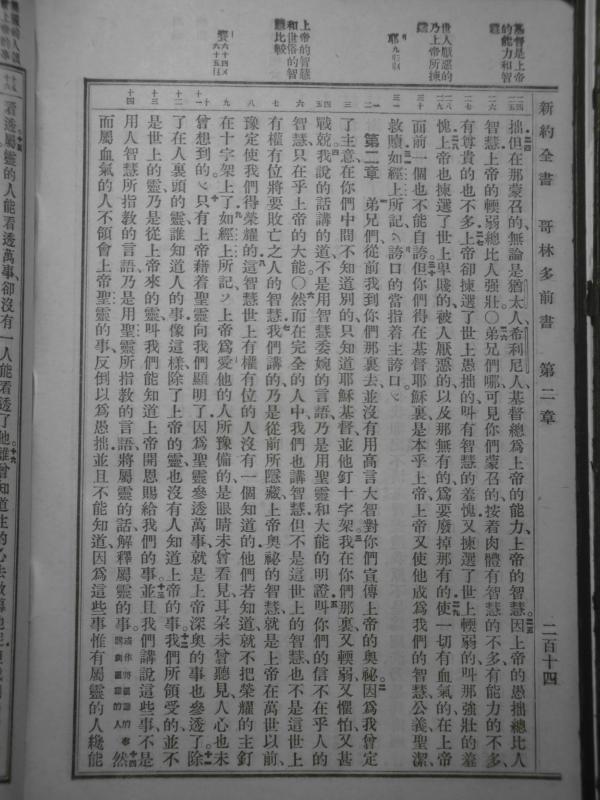 新約全書 哥林多前書 第二章 二百十四
基督是上帝的能力和智慧
世人厭惡的乃上帝所揀選
上帝的智慧和世俗的智慧比較
拙但在那蒙召的無論是猶太人希利尼人基督總爲上帝的能力上帝的智慧因上帝的愚拙總比人
智慧上帝的輭弱總比人强壯○弟兄們哪可見你們蒙召的按着肉體有智慧的不多有能力的不多
有尊貴的也不多上帝卻揀選了世上愚拙的叫有智慧的羞愧又揀選了世上輭弱的叫那強壯的羞
愧上帝也揀選了世上卑賤的被人厭惡的以及那無有的爲要廢掉那有的使一切有血氣的在上帝
面前一個也不能自誇但你們得在基督耶穌裏是本乎上帝上帝又使他成爲我們的智慧公義聖潔
救贖如經上所記誇口的當指着主誇口
第二章 弟兄們從前我到你們那裏去並沒有用高言大智對你們宣傳上帝的奧祕因爲我曾定
了主意在你們中間不知道別的只知道耶穌基督並他釘十字架我在你們那裏又輭弱又懼怕又甚
戰兢我說的話講的道不是用智慧委婉的言語乃是用聖靈和大能的明證叫你們的信不在乎人的
智慧只在乎上帝的大能○然而在完全的人中我們也講智慧但不是這世上的智慧也不是這世上
有權有位將要敗亡之人的智慧我們講的乃是從前所隱藏上帝奧祕的智慧就是上帝在萬世以前
豫定使我們得榮耀的這智慧世上有權有位的人沒有一個知道的他們若知道就不把榮耀的主釘
在十字架上了如經上所記上帝爲愛他的人所豫備的是眼睛未曾看見耳朵未曾聽見人心也未
曾想到的只有上帝藉着聖靈向我們顯明了因爲聖靈參透萬事就是上帝深奧的事也參透了除
了在人裏頭的靈誰知道人的事像這樣除了上帝的靈也沒有人知道上帝的事我們所領受的並不
是世上的靈乃是從上帝來的靈叫我們能知道上帝開恩賜給我們的事並且我們講說這些事不是
用人智慧所指教的言語乃是用聖靈所指教的言語將屬靈的話解釋屬靈的事 然
而屬血氣的人不領會上帝聖靈的事反倒以爲愚拙並且不能知道因爲這些事惟有屬靈的人纔能
看透屬靈的人能看透萬事卻沒有一人能看透了他誰曾知道主的心去教導他